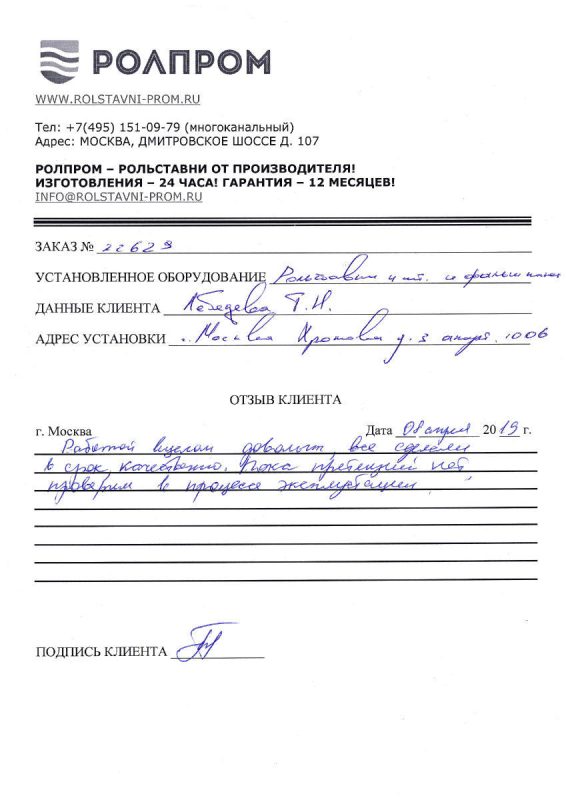 РОЛПРОМ
WWW.ROLSTAVNI-PROM.RU
Тел: +7(495) 151-09-79 (многоканальный)
Адрес: МОСКВА, ДМИТРОВСКОЕ ШОССЕ Д. 107
РОЛПРОМ – РОЛЬСТАВНИ ОТ ПРОИЗВОДИТЕЛЯ!
ИЗГОТОВЛЕНИЯ – 24 ЧАСА! ГАРАНТИЯ – 12 МЕСЯЦЕВ!
INFO@ROLSTAVNI-PROM.RU
ЗАКАЗ № 22629
УСТАНОВЛЕННОЕ ОБОРУДОВАНИЕ Рольставни 4 шт.
ДАННЫЕ КЛИЕНТА Лебедева Т.Н.
АДРЕС УСТАНОВКИ г. Москва д. 3 1006
ОТЗЫВ КЛИЕНТА
г. Москва Дата 08 апреля 2019 г.
Работой вцелом довольны, все сделали
в срок качественно. Пока претензий нет
проверим в процессе эксплуатации.
ПОДПИСЬ КЛИЕНТА